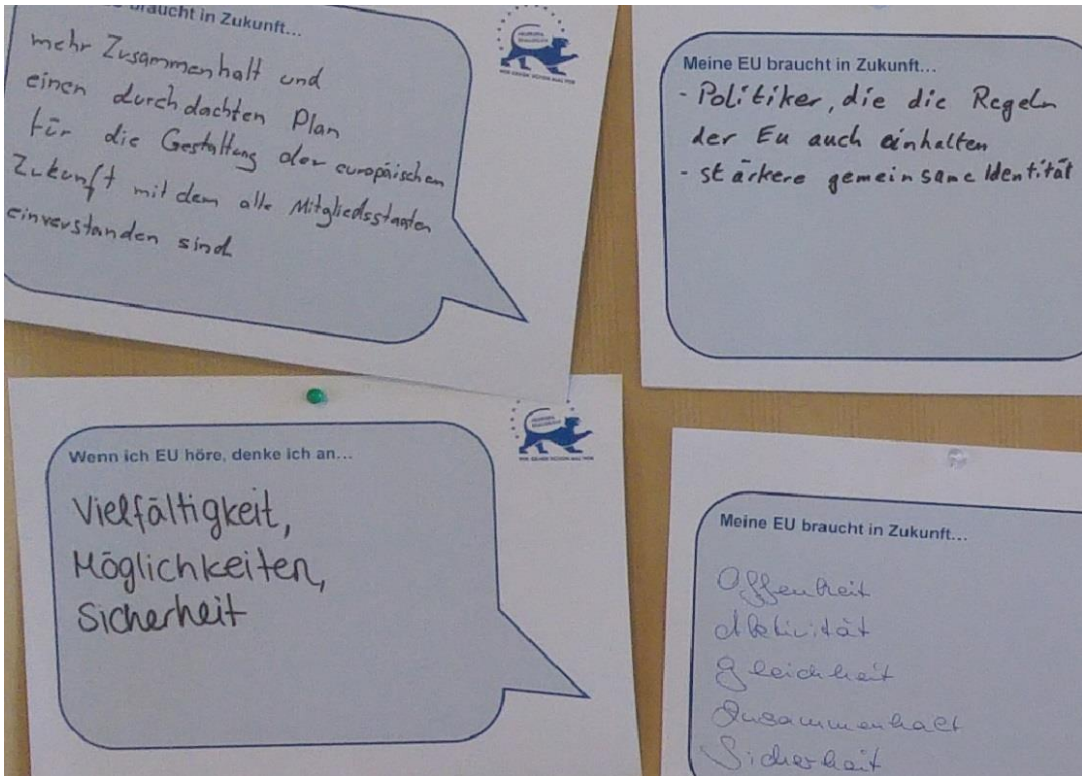 braucht in Zukunft...
mehr Zusammenhalt und
einen durchdachten Plan
für die Gestaltung der europäischen
Zukunft mit dem alle Mitgliedsstaaten
einverstanden sind
Meine EU braucht in Zukunft...
- Politiker, die die Regeln
der Eu auch einhalten
- stärkere gemeinsame Identität
Wenn ich EU höre, denke ich an...
Vielfältigkeit,
Möglichkeiten,
Sicherheit
Meine EU braucht in Zukunft...
Offenheit
Aktivität
Gleichheit
Zusammenhalt
Sicherheit